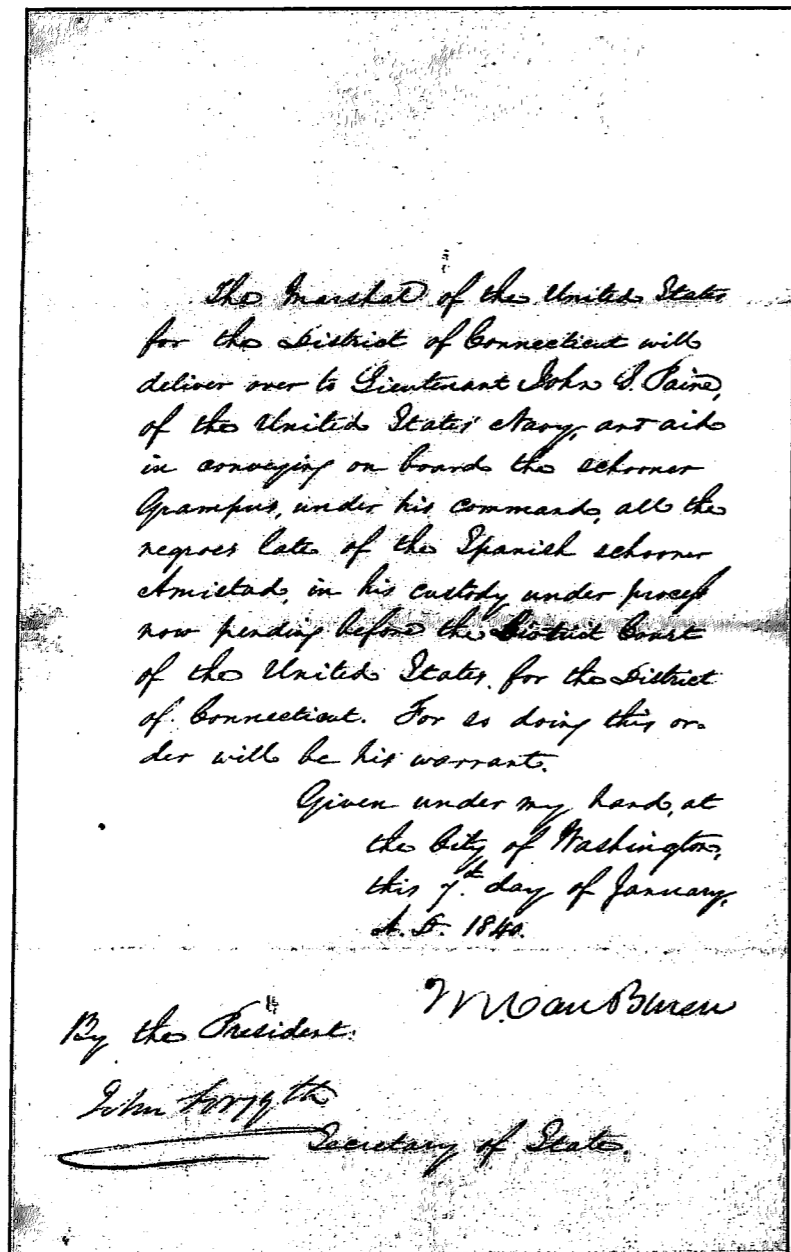 The Marshal of the United States
for the District of Connecticut will
deliver over to Lieutenant John S. Paine,
of the United States Navy, and aid
in conveying on board the schooner
Grampus, under his command, all the
negroes late of the Spanish schooner
Amistad, in his custody under process
now pending before the District Court
of the United States, for the District
of Connecticut. For so doing this or-
der will be his warrant.
Given under my hand, at
the City of Washington,
this 7th. day of January,
A.D. 1840.
M Van Buren
By the President:
John Forsyth
Secretary of State.